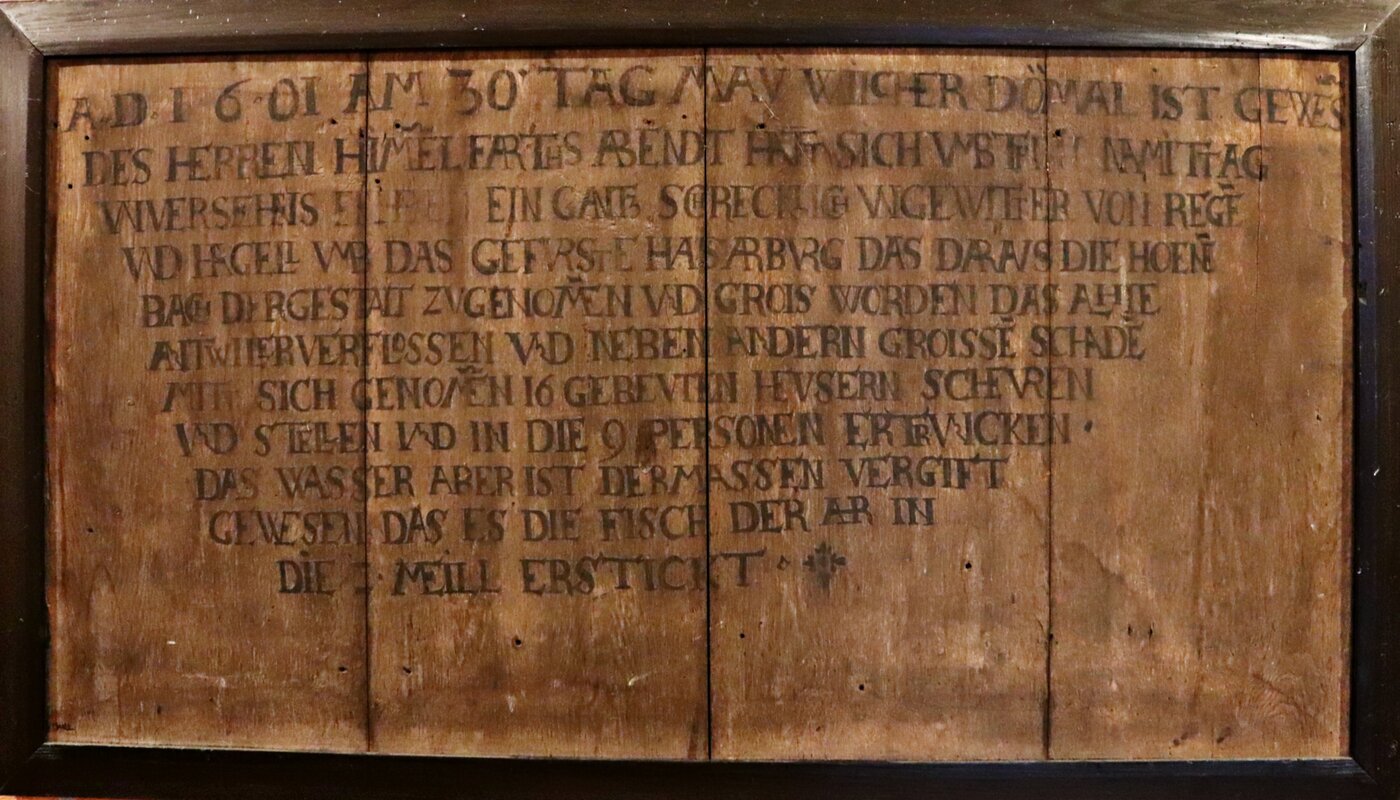 A.D. 1601 AM 30 TAG MAY WILCHER DOMAL IST GEWES
DES HERREN HIMELFARTHS ABENDT HATT SICH VMB NAMITTAG
VNVERSEHNS EIN GANTZ SCHRECKLICH VNGEWITTER VON REGĒ
VND HAGELL VMB DAS GEFVRSTE HAVS ARBVRG DAS DARAVS DIE HOENĒ
BACH DERGESTALT ZVGENOM̄EN VND GROIS WORDEN DAS ALHIE
ANTWILERVERFLOSSEN VND NEBEN ANDERN GROISSĒ SCHADĒ
MITT SICH GENOM̄EN 16 GEBEVTEN HEVSERN SCHEVREN
VND STELLEN VND IN DIE 9 PERSONEN ERTRVNCKEN ·
DAS WASSER ABER IST DERMASSEN VERGIFT
GEWESEN DAS ES DIE FISCH DER AR IN
DIE MEILL ERSTICKT ·